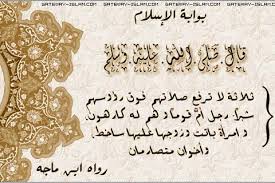 GATEWAY-ISLAM.COM GATEWAY-ISLAM.COM GATEWAY-ISLAM.COM
بوابة الإسلام
قال صلى الله عليه وسلم
ثلاثة لا ترفع صلاتهم فوق رؤوسهم
شبرا رجل أم قوما وهم له كارهون
وامرأة باتت وزوجها عليها ساخط
وأخوان متصارمان
رواه ابن ماجه